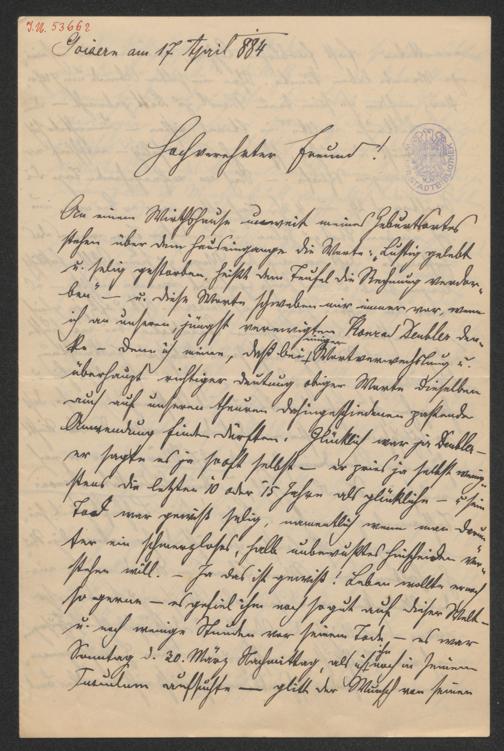 J.N. 53662
Goisern am 17 April 884
Hochverehrter Freund!
An einem Wirthshause unweit meines Geburtsortes
stehen über dem Hauseingange die Worte: „Lustig gelebt
u. selig gestorben, heißt dem Teufel die Rechnung verdor-
ben" — u. diese Worte schweben mir immer vor, wenn
ich an unseren, jüngst verewigten Konrad Deubler den-
ke — denn ich meine, daß bei einiger Wortverwechslung u.
überhaupt richtiger Deutung obiger Worte dieselben
auch auf unseren theuren Dahingeschiedenen passende
Anwendung finden dürften. Glücklich war ja Deubler —
er sagte es ja so oft selbst — er pries ja selbst wenig-
stens die letzten 10 oder 15 Jahre als glückliche — u. sein
Tod war gewiß selig, namentlich wenn man darun-
ter ein schmerzloses, halb unbewußtes Hinscheiden ver-
stehen will. — Ja das ist gewiß! Leben wollte er noch
so gerne — es gefiel ihm noch so gut auf dieser Welt —
u. noch wenige Stunden vor seinem Tode — es war
Sonntag d. 30. März Nachmittag, als ich ihn noch in seinem
Tusculum aufsuchte — glitt der Wunsch von seinen